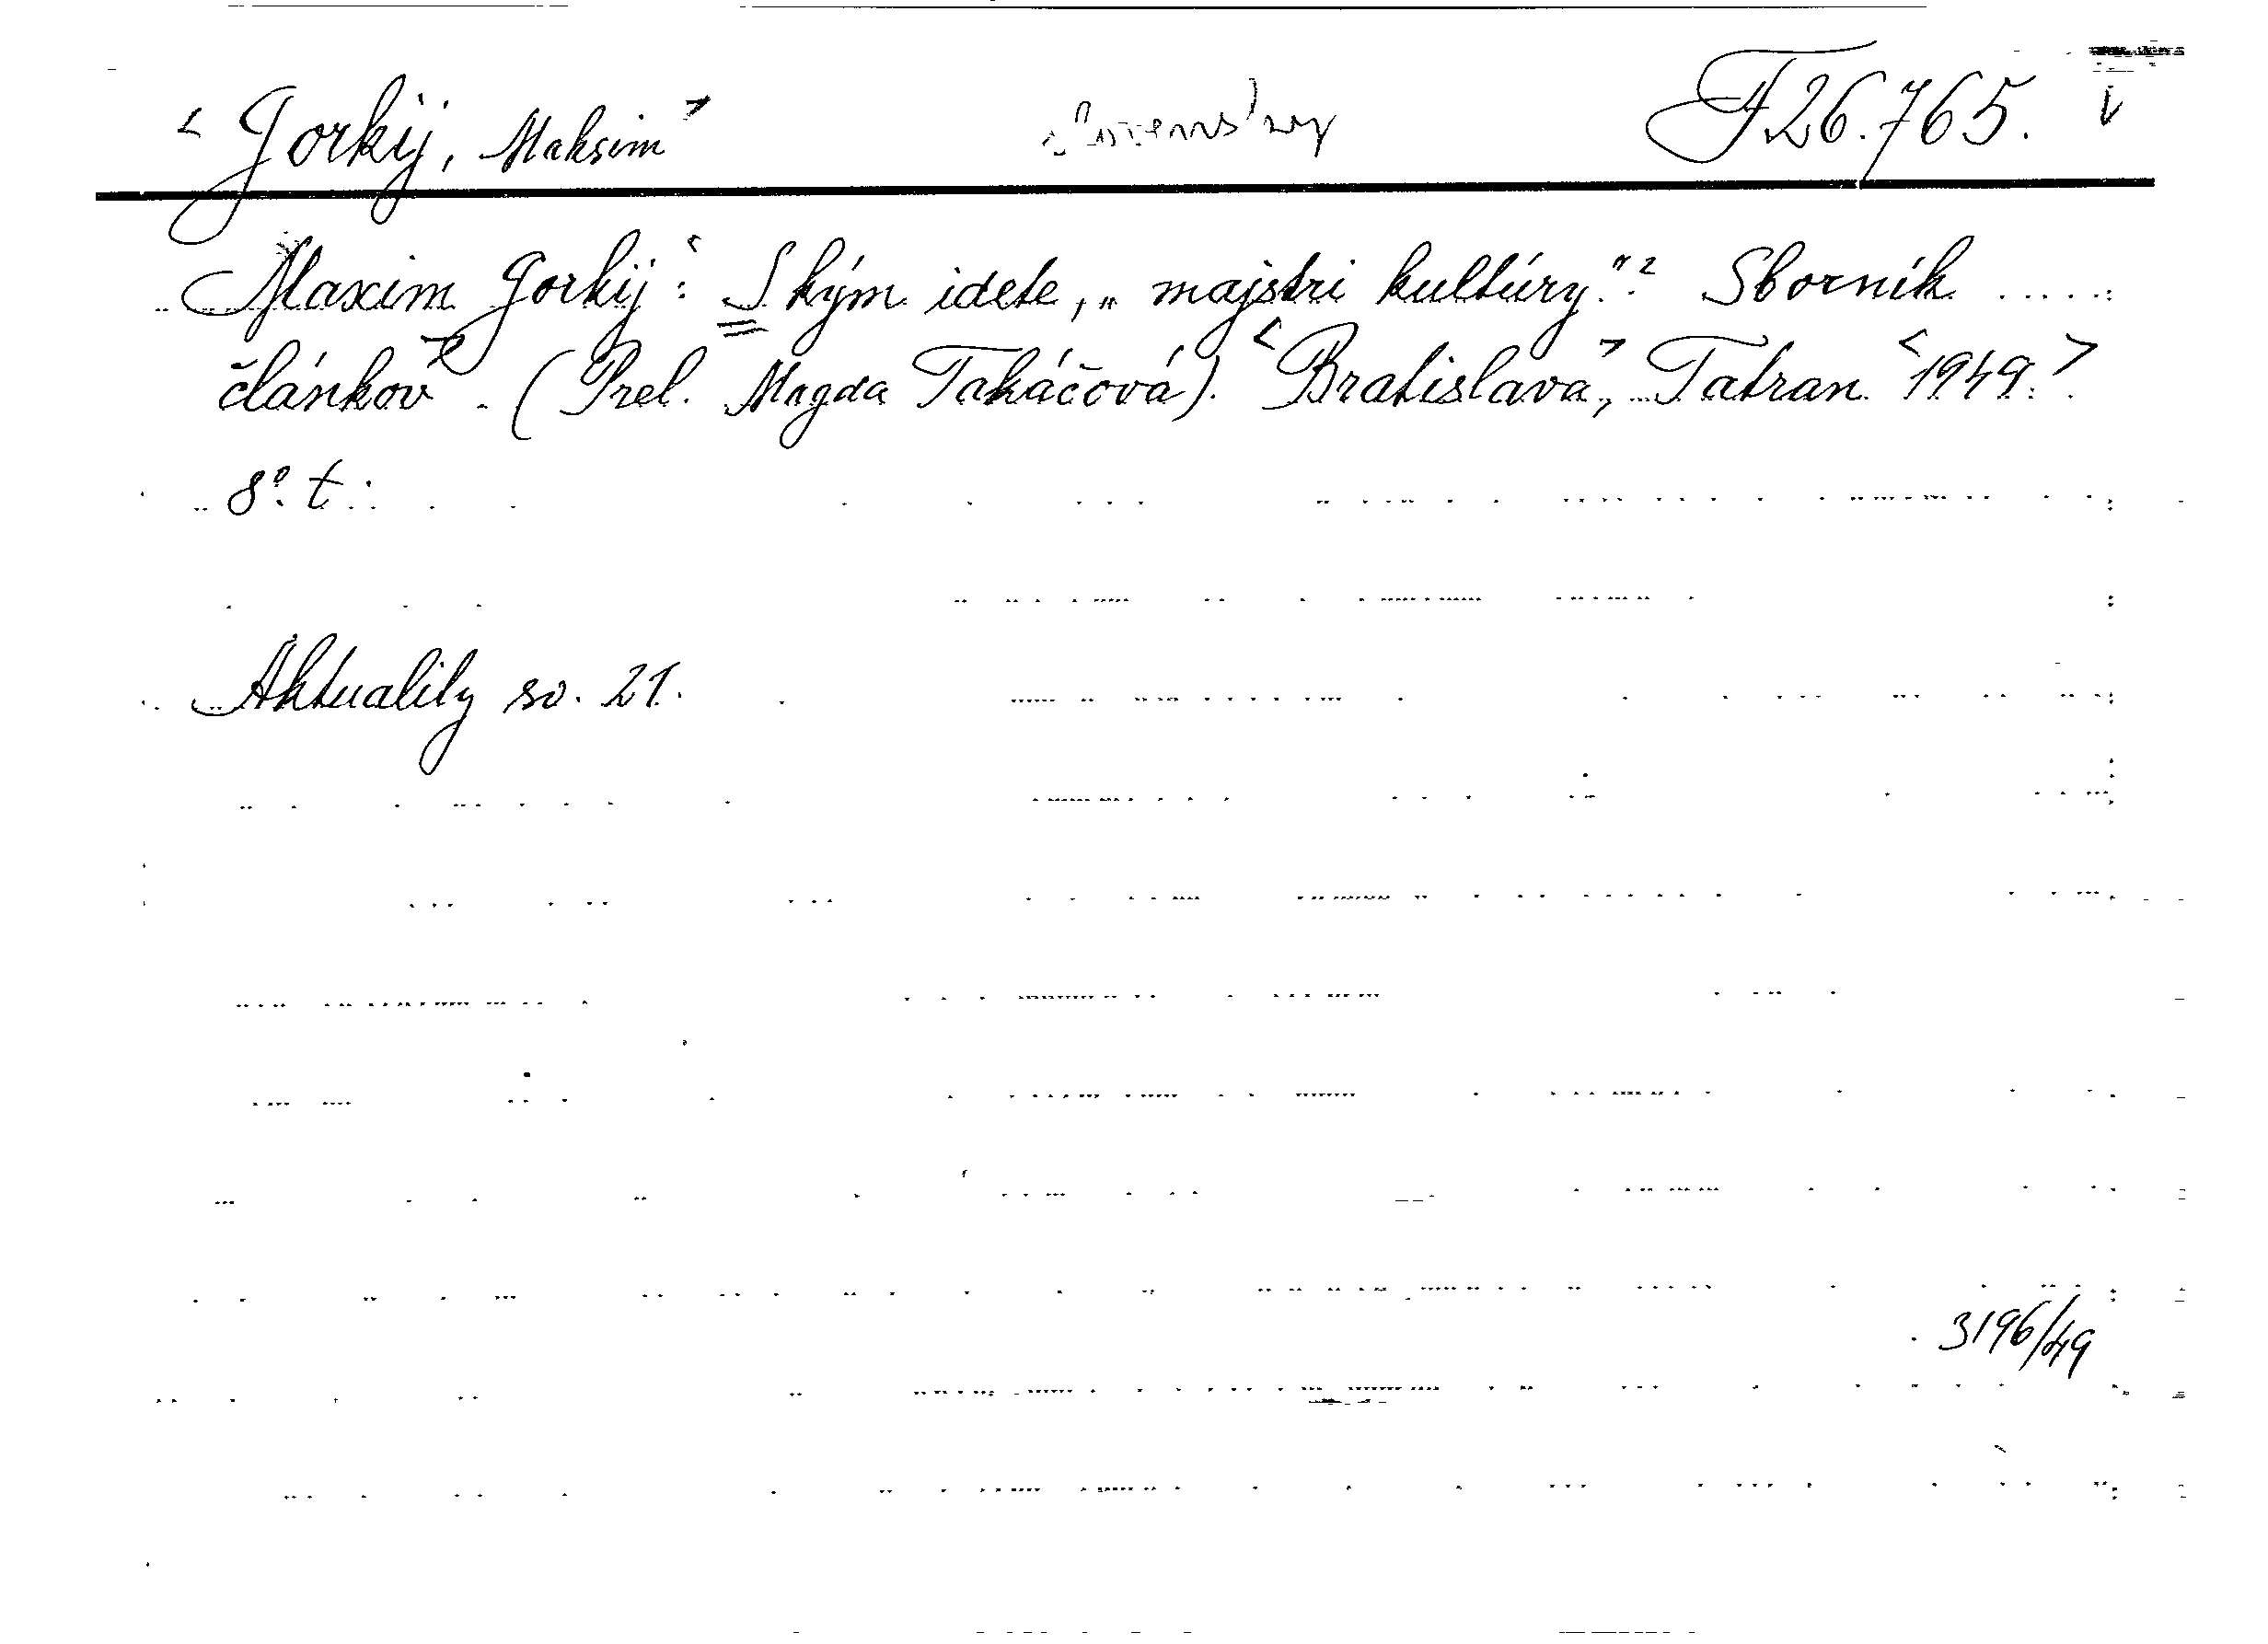 <Gorkij, Maksim> F 26.765.
Maxim Gorkij: S kým idete, „majstri kultúry"? Sborník
článkov. (Prel. Magda Takáčová). <Bratislava>, Tatran <1949.>
8°. t.
Aktuality sv. 21.
3196/49